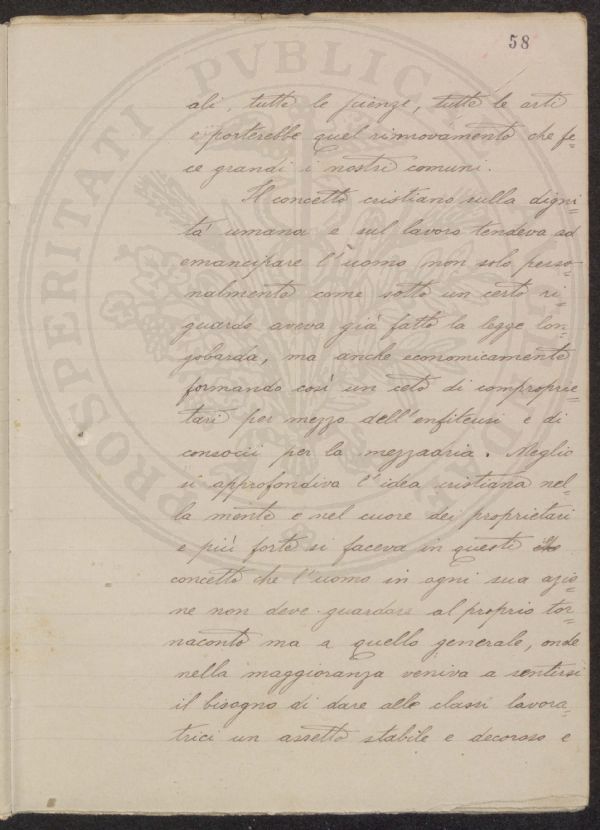 58
ali, tutte le scienze, tutte le arti
e porterebbe quel rinnovamento che fe=
ce grandi i nostri comuni.
Il concetto cristiano sulla digni=
tà umana e sul lavoro tendeva ad
emancipare l'uomo non solo perso=
nalmente come sotto un certo ri=
guardo aveva già fatto la legge lon=
gobarda, ma anche economicamente
formando così un ceto di comproprie=
tari per mezzo dell'enfiteusi e di
consocii per la mezzadria. Meglio
si approfondiva l'idea cristiana nel=
la mente e nel cuore dei proprietari
e più forte si faceva in questi
concetto che l'uomo in ogni sua azio=
ne non deve guardare al proprio tor=
naconto ma a quello generale, onde
nella maggioranza veniva a sentirsi
il bisogno di dare alle classi lavora=
trici un assetto stabile e decoroso e
PROSPERITATI PVBLICAE